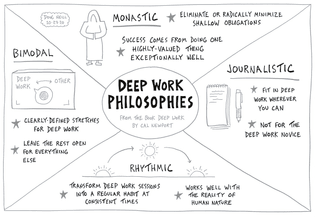 MONASTIC
ELIMINATE OR RADICALLY MINIMIZE
SHALLOW OBLIGATIONS
SUCCESS COMES FROM DOING ONE
HIGHLY-VALUED THING
EXCEPTIONALLY WELL
BIMODAL
DEEP
WORK
OTHER
CLEARLY-DEFINED STRETCHES
FOR DEEP WORK
LEAVE THE REST OPEN
FOR EVERYTHING
ELSE
DEEP WORK
PHILOSOPHIES
FROM THE BOOK DEEP WORK
BY CAL NEWPORT
JOURNALISTIC
FIT IN DEEP
WORK WHEREVER
YOU CAN
NOT FOR THE
DEEP WORK NOVICE
RHYTHMIC
TRANSFORM DEEP WORK SESSIONS
INTO A REGULAR HABIT AT
CONSISTENT TIMES
WORKS WELL WITH
THE REALITY OF
HUMAN NATURE